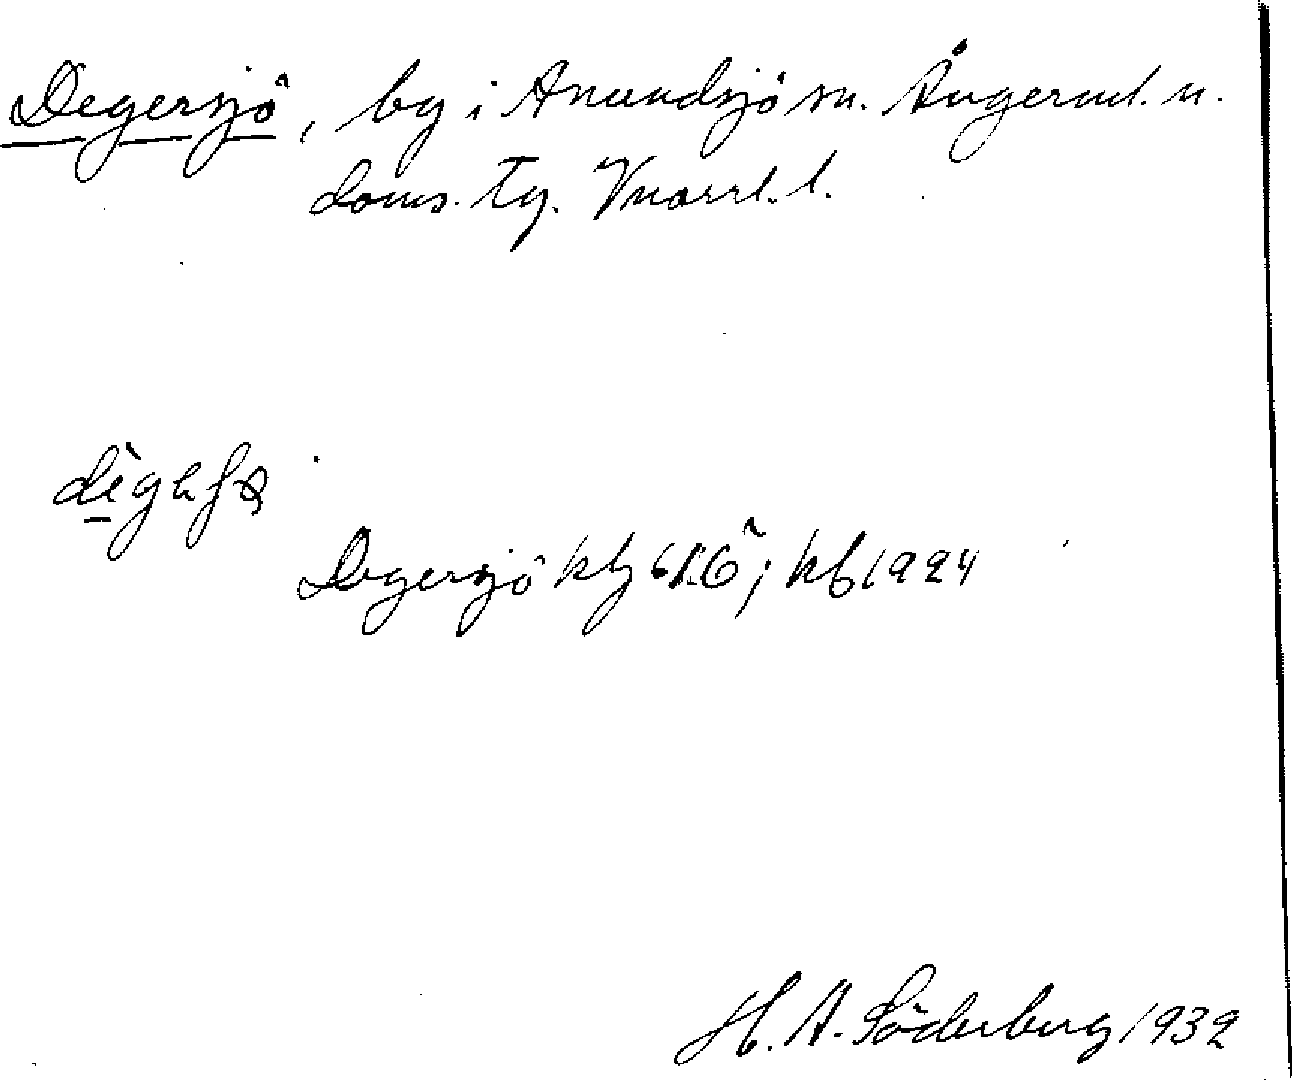 Degersjö, by i Anundsjö sn. Ångerml. n.
doms. tg. Vnorrl. l.
Degersjö ktj 61 ; kb 1924
H. A. Söderberg 1932